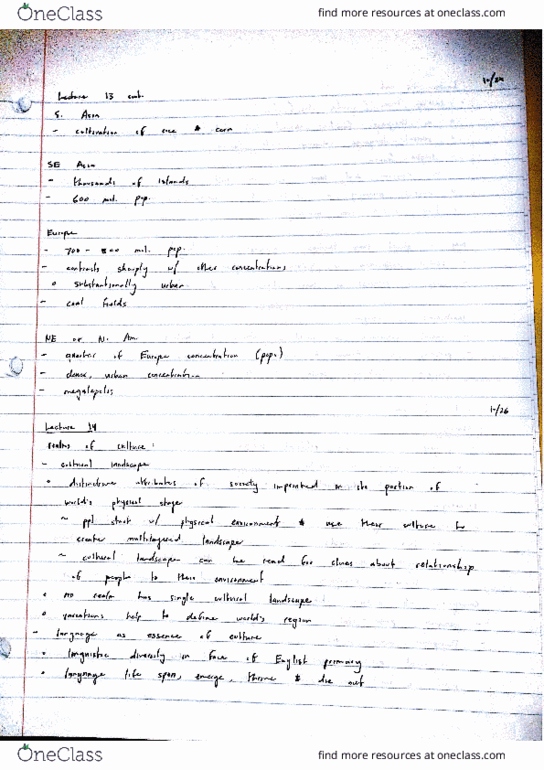 OneClass
find more resources at oneclass.com
10/24
Lecture 13 cont.
S. Asia
- cultivation of rice & corn
SE Asia
- thousands of islands
- 600 mil. pop.
Europe
- 700 - 800 mil. pop.
- contrasts sharply w/ other concentrations
substantionally urban
- coal fields
NE N. Am.
- quarter of Europe concentration (pop.)
- dense, urban concentration
- megalopolis
10/26
Lecture 14
realms of culture
- cultural landscape
distinctive attributes of society imprinted on its portion of
world's physical stage
~ ppl start w/ physical environment & use their culture to
create landscape
~ cultural landscape can be read for clues about relationship
of people to their environment
no realm has single cultural landscape
variations help to define world's region
- language as essence of culture
linguistic diversity in face of English primacy
language life span, emerge, thrive & die out
OneClass
find more resources at oneclass.com